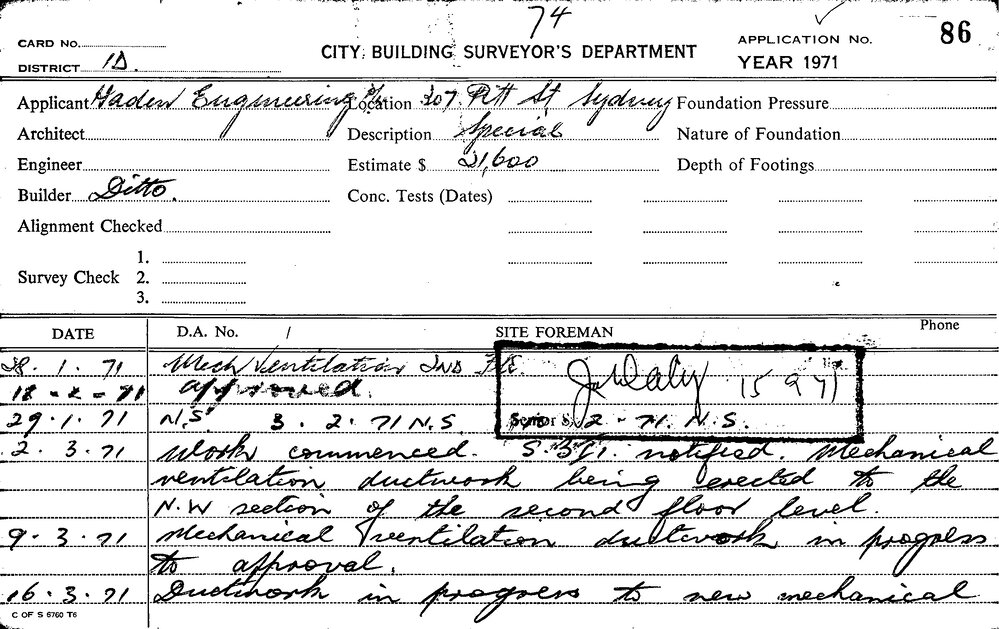 74
CARD No.
CITY BUILDING SURVEYOR'S DEPARTMENT
APPLICATION No. 86
DISTRICT 1D.
YEAR 1971
Applicant Haden Engineering P/L Location 307 Pitt St, Sydney Foundation Pressure
Architect Description Special Nature of Foundation
Engineer Estimate $ 21,600 Depth of Footings
Builder Ditto. Conc. Tests (Dates)
Alignment Checked
1.
Survey Check 2.
3.
DATE D.A. No. / SITE FOREMAN Phone
28.1.71 Mech Ventilation 2nd Flr.
18-2-71 approved.
J. Daly 15 9 71
29.1.71 N.S. 3.2.71 N.S Senior S. 2-71. N.S.
2.3.71 Work commenced. S.B.I. notified. Mechanical
ventilation ductwork being erected to the
N.W section of the second floor level.
9.3.71 Mechanical ventilation ductwork in progress
to approval.
16.3.71 Ductwork in progress to new mechanical
C OF S 6760 T6